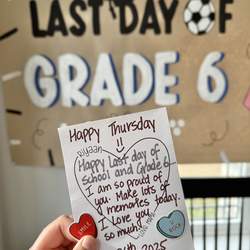 LAST DAY OF
GRADE 6
Happy Thursday
!!
Happy Last day of
school and Grade 6
I am so proud of
you. Make lots of
memories today.
I love you
so much!
2025